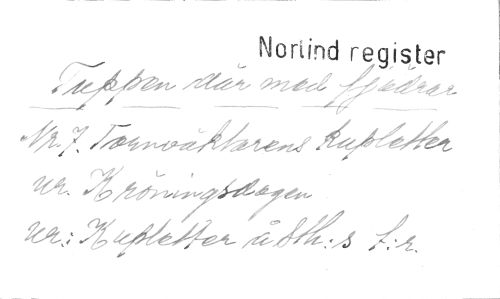 Norlind register
Tuppen där med fjädrar
Nr. 7. Tornväktarens Kupletter
ur. Kröningsdagen
ur: Kupletter å Sth:s t:r.